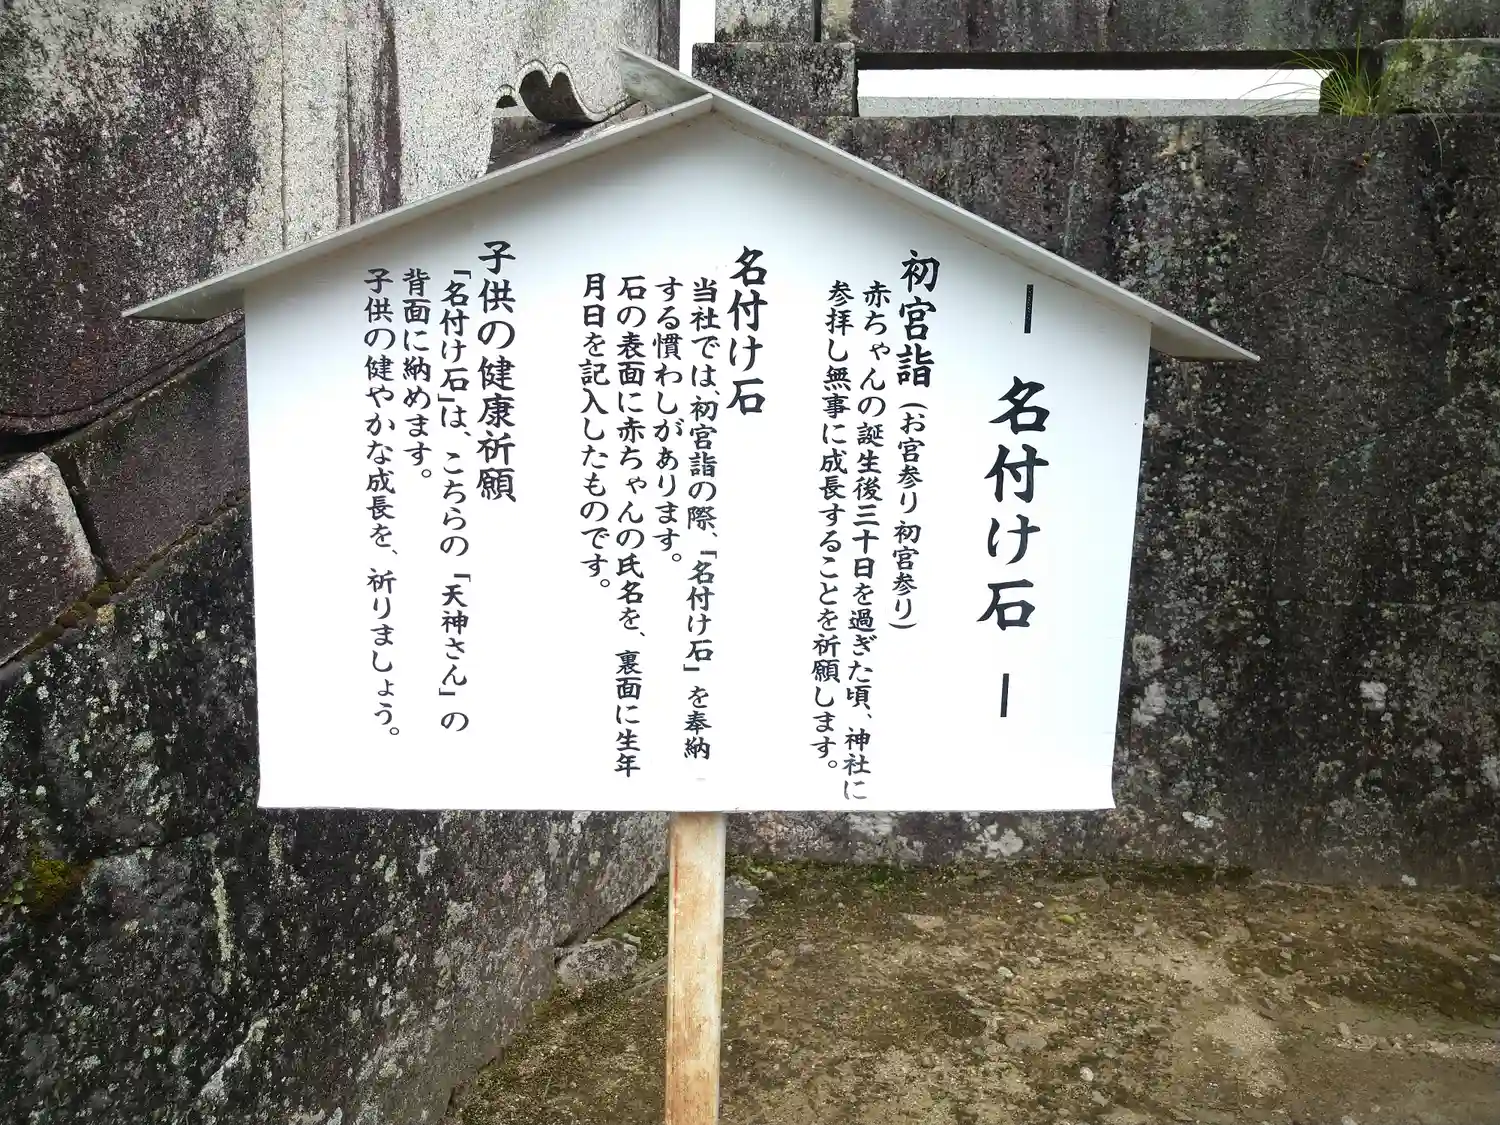 ― 名付け石 ―
初宮詣(お宮参り 初宮参り)
赤ちゃんの誕生後三十日を過ぎた頃、神社に
参拝し無事に成長することを祈願します。
名付け石
当社では、初宮詣の際、「名付け石」を奉納
する慣わしがあります。
石の表面に赤ちゃんの氏名を、裏面に生年
月日を記入したものです。
子供の健康祈願
「名付け石」は、こちらの「天神さん」の
背面に納めます。
子供の健やかな成長を、祈りましょう。